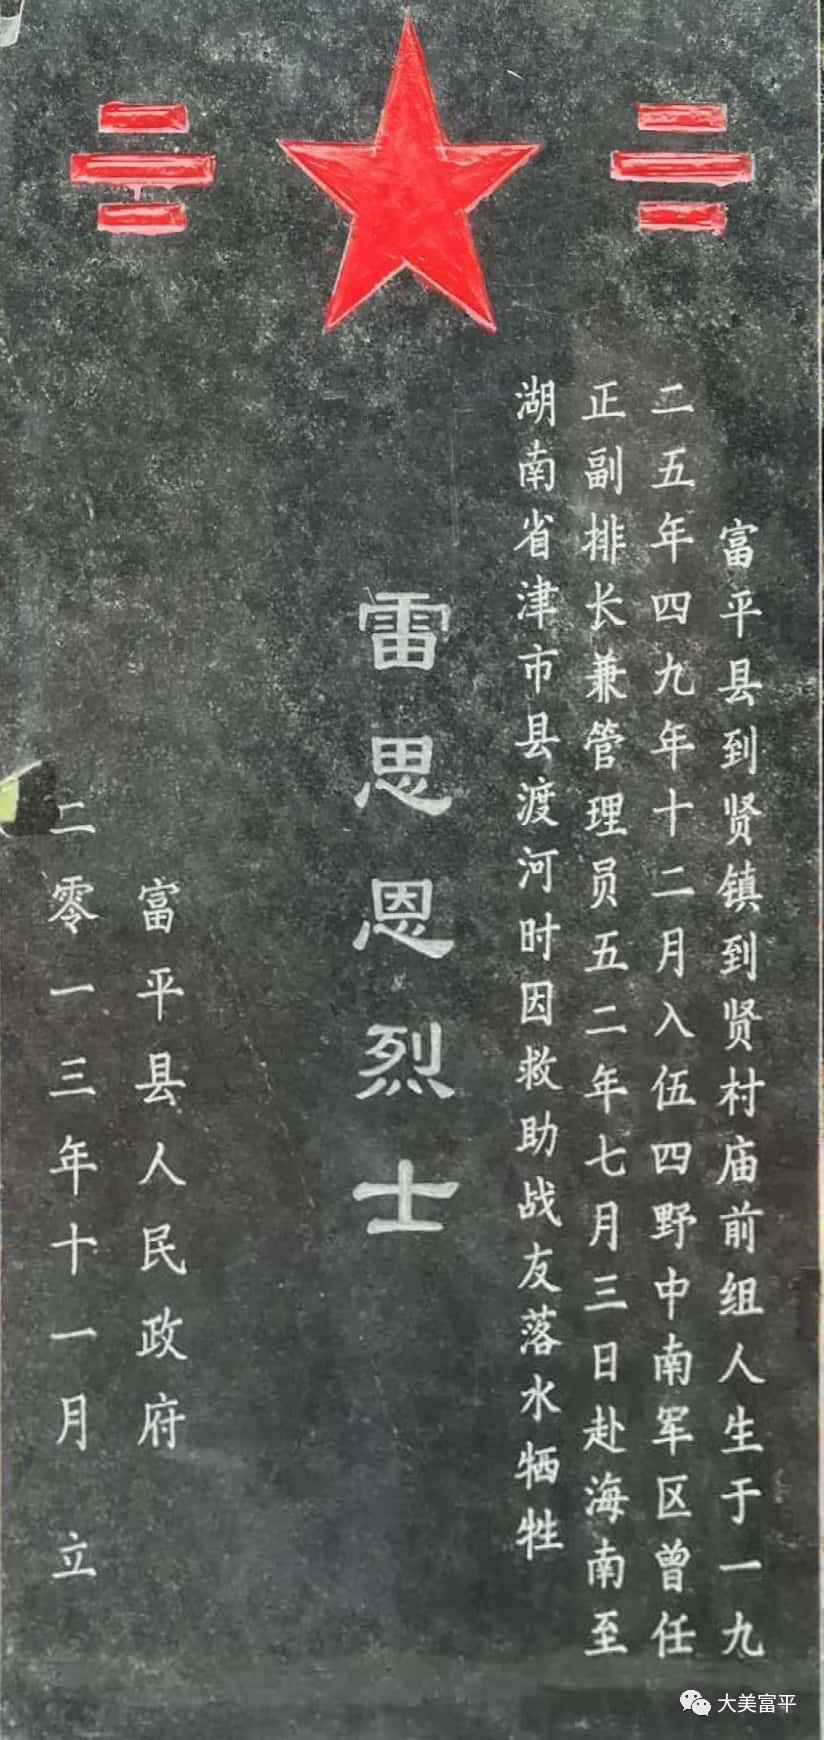 富平县到贤镇到贤村庙前组人生于一九
二五年四九年十二月入伍四野中南军区曾任
正副排长兼管理员五二年七月三日赴海南至
湖南省津市县渡河时因救助战友落水牺牲
雷思恩烈士
富平县人民政府
二零一三年十一月 立
大美富平